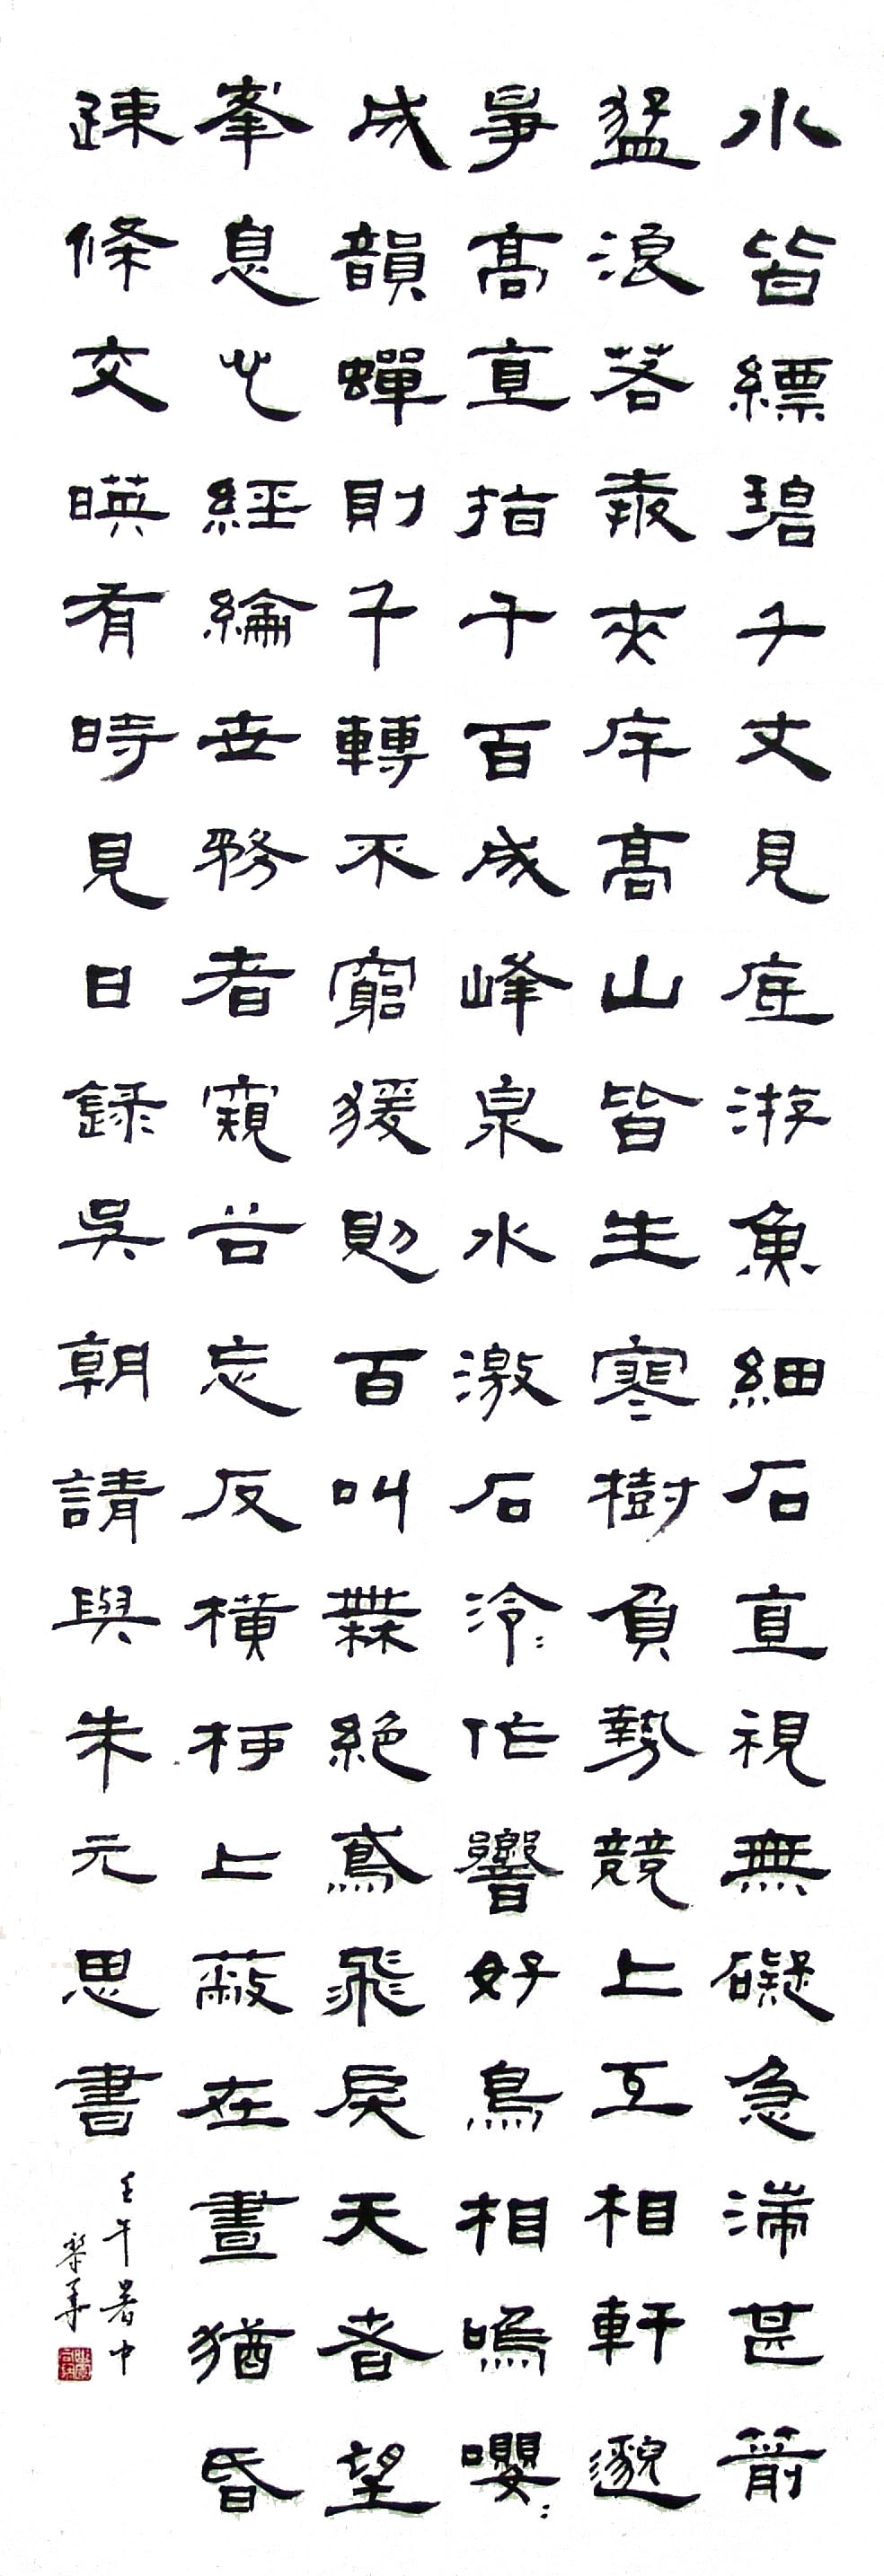 水皆縹碧千丈見底游魚細石直視無礙急湍甚箭
猛浪若奔夾岸高山皆生寒樹負勢競上互相軒邈
爭高直指千百成峰泉水激石泠:作響好鳥相鳴嚶:
成韻蟬則千轉不窮猨則百叫無絕鳶飛戾天者望
峯息心經綸世務者窺谷忘反橫柯上蔽在晝猶昏
疎條交暎有時見日錄吳朝請與朱元思書
壬午暑中